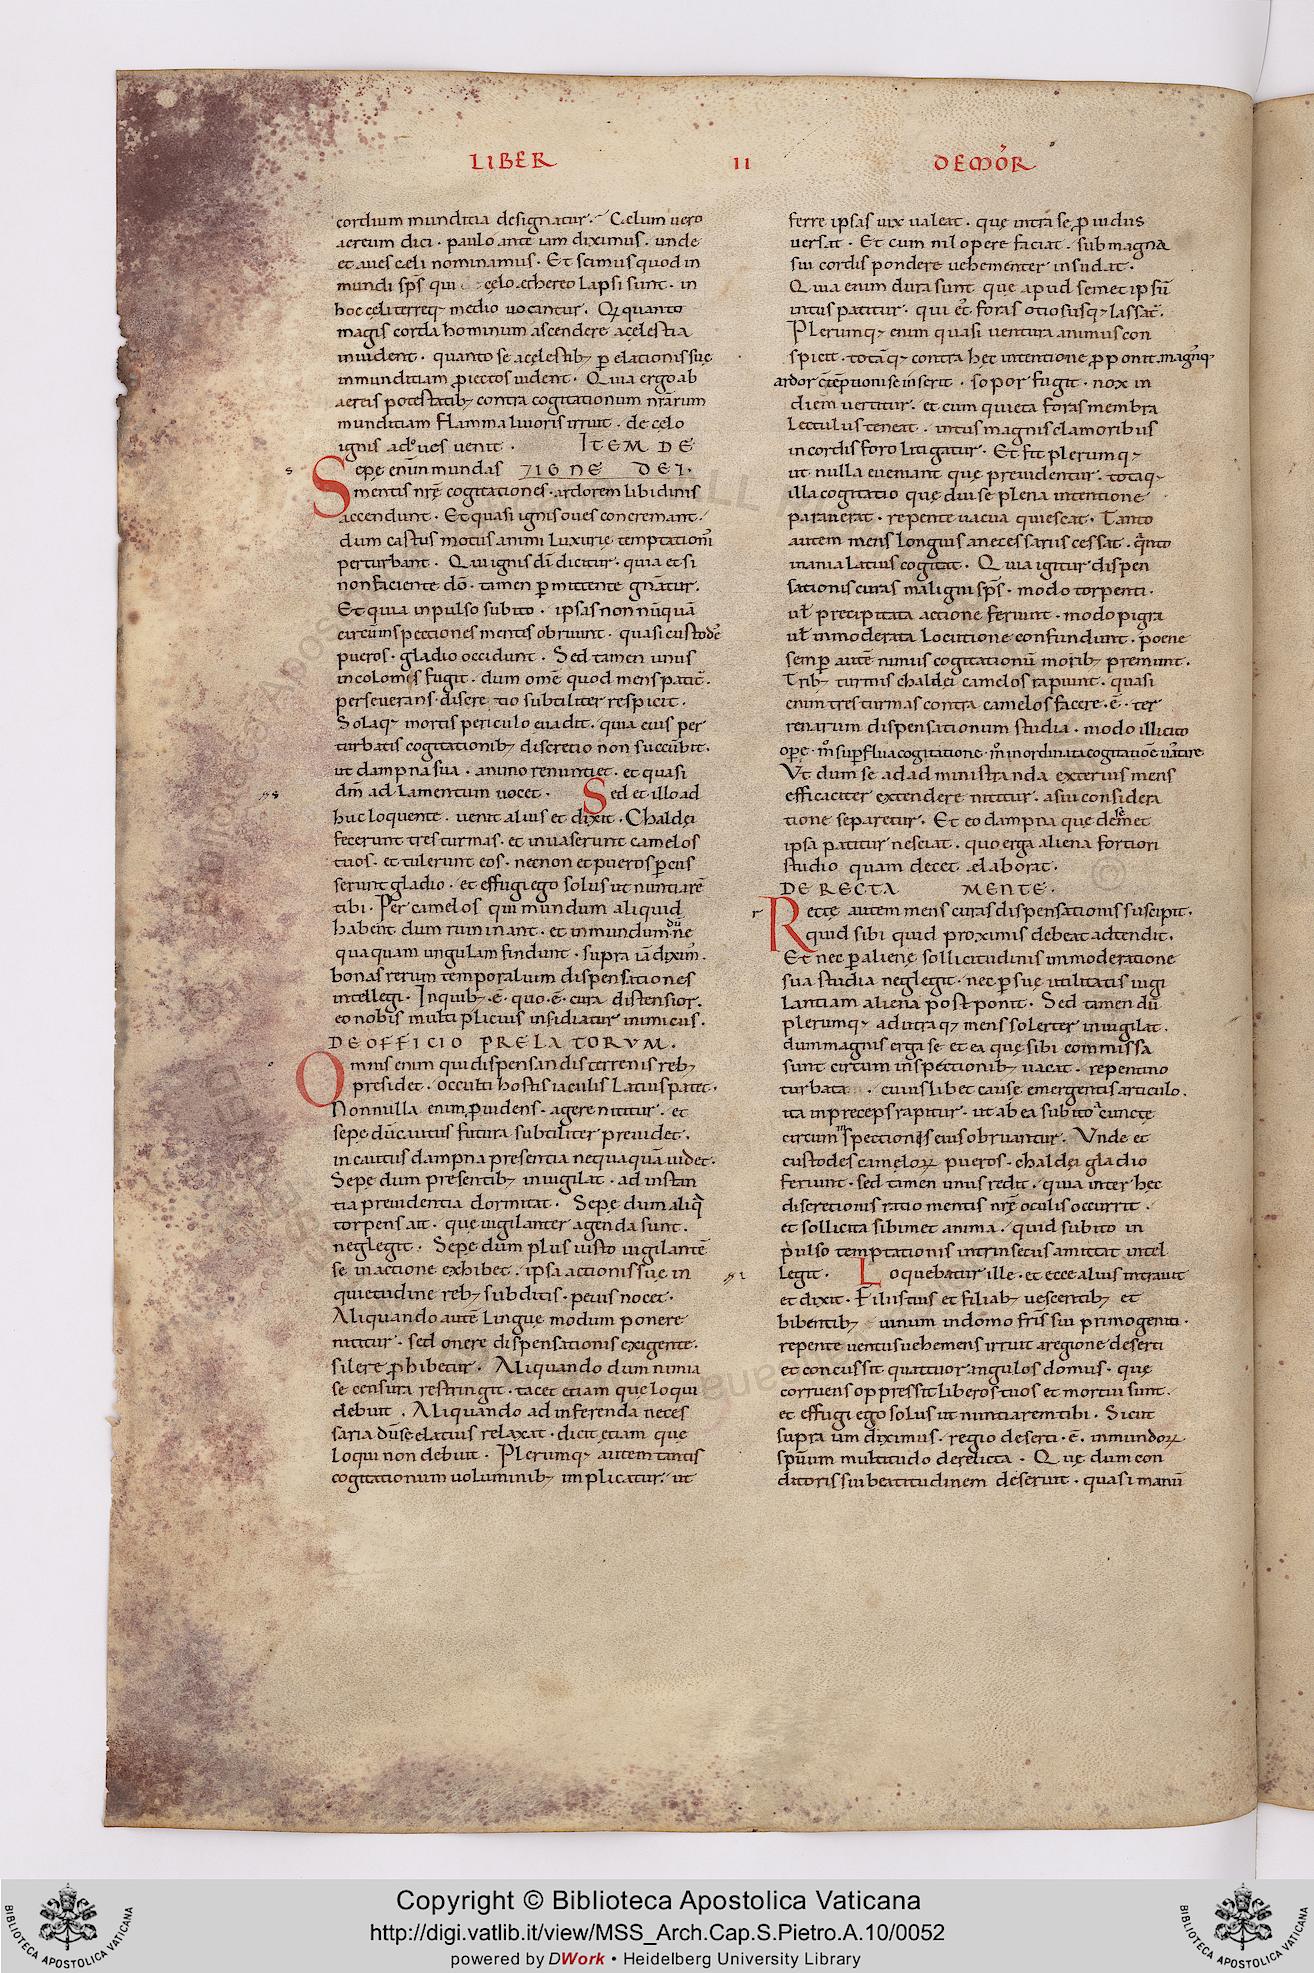 LIBER II DEMOR̄
cordium munditia designatur. Cęlum uero
aereum dici. paulo ante iam diximus. unde
et aues cęli nominamus. Et scimus quod in
mundi sp̄s qui cęlo ęthereo lapsi sunt. in
hoc cęli terręq; medio uocantur. Q; quanto
magis corda hominum ascendere acęlestia
inuident. quanto se acęlestib; p elationis suę
inmunditiam proiectos uident. Quia ergo ab
aeriis potestatib; contra cogitationum nr̄arum
munditiam flamma liuoris irruit. de cęlo
ignis ad oues uenit. ITEM DE
Sepę enim mundas 7IGNE DEI.
mentis nr̄ę cogitationes. ardorem libidinis
accendunt. Et quasi ignis oues concremant.
dum castus motus animi luxurię temptationū
perturbant. Qui ignis dī dicitur. quia et si
non faciente dō. tamen pmittente gn̄atur.
Et quia inpulso subito. ipsas non nūquā
circumspectiones mentis obruunt. quasi custodes
pueros. gladio occidunt. Sed tamen unus
incolomis fugit. dum omē quod mens patit̄.
perseuerans discretio subtiliter respicit.
Solaq; mortis periculo euadit. quia eius per
turbatis cogitationib; discretio non succūbit.
ut dampna sua. animo renuntiet. et quasi
dm̄ ad lamentum uocet. Sed et illo ad
huc loquente. uenit alius et dixit. Chaldęi
fecerunt tres turmas. et inuaserunt camelos
tuos. et tulerunt eos. necnon et pueros pcus
serunt gladio. et effugi ego solus ut nuntiarē
tibi. Per camelos qui mundum aliquid
habent dum ruminant. et inmundum dū ne
quaquam ungulam findunt. supra iā diximus.
bonas rerum temporalium dispensationes
intellegi. In quib; .ē. quo .ē. cura distensior.
eo nobis multiplicius insidiatur inimicus.
DE OFFICIO PRELATORVM.
Omnis enim qui dispensandis terrenis reb;
presidet. occulti hostis iaculis latius patet.
Nonnulla enim puidens. agere nititur. et
sepę dū cautus futura subtiliter preuidet.
incautus dampna presentia nequaquā uidet.
Sepe dum presentib; inuigilat. ad instan
tia preuidentia dormitat. Sepe dum aliq̄
torpens ait. quę uigilanter agenda sunt.
neglegit. Sepe dum plus iusto uigilantē
se in actione exhibet. ipsa actionis suę in
quietudine reb; subditis. peius nocet.
Aliquando autē linguę modum ponere
nititur. sed onere dispensationis exigente.
silere phibetur. Aliquando dum nimia
se censura restringit. tacet etiam que loqui
debuit. Aliquando ad inferenda neces
saria dū se elatius relaxat. dicit etiam que
loqui non debuit. Plerumq; autem tantis
cogitationum uoluminib; implicatur. ut
ferre ipsas uix ualeat. quę intra se puidus
uersat. Et cum nil opere faciat. sub magna
sui cordis pondere uehementer insudat.
Quia enim dura sunt quę apud semet ipsū
intus patitur. qui et̄ foras otiosusq; lassat̄.
Plerumq; enim quasi uentura animus con
spicit. totāq; contra hęc intentione pponit. magnusq;
ardor se inserit. sopor fugit. nox in
diem uertitur. et cum quieta foras membra
lectulus teneat. intus magnis clamoribus
in cordis foro litigatur. Et fit plerumq;
ut nulla eueniant quę preuidentur. totaq;
illa cogitatio quę diu se plena intentione
parauerat. repente uacua quiescat. Tanto
autem mens longius a necessariis cessat. q̄nto
inania latius cogitat. Quia igitur dispen
sationis curas maligni sp̄s. modo torpenti.
ul̄ precipitata actione feriunt. modo pigra
ul̄ inmoderata locutione confundunt. poene
semp autē nimiis cogitationū molib; premunt.
Trib; turmis chaldei camelos rapiunt. quasi
enim tres turmas contra camelos facere .ē. ter
renarum dispensationum studia. modo illicito
opę. m̊ supflua cogitatione. m̊ inordinata cogitatiōe uastare.
Vt dum se ad administranda exterius mens
efficaciter extendere nititur. a sui considera
tione separetur. Et eo dampna que de semet
ipsa patitur nesciat. quo erga aliena fortiori
studio quam decet elaborat.
DE RECTA MENTE.
Rectę autem mens curas dispensationis suscipit.
quid sibi quid proximis debeat adtendit.
Et nec p alienę sollicitudinis inmoderatione
sua studia neglegit. nec p suę utilitatis uigi
lantiam aliena postponit. Sed tamen dū
plerumq; ad utraq; mens solerter inuigilat.
dum magnis erga se et ea quę sibi commissa
sunt circum inspectionib; uacat. repentino
turbata. cuius libet causę emergentis articulo.
ita in preceps rapitur. ut ab ea subito cunctę
circumspectiones eius obruantur. Vnde et
custodes cameloꝝ pueros. chaldęi gladio
feriunt. sed tamen unus redit. quia inter hęc
discretionis ratio mentis nr̄ę oculis occurrit.
et sollicita sibimet anima. quid subito in
pulso temptationis intrinsecus amittat intel
legit. Loquebatur ille. et ecce alius intrauit
et dixit. Filiis tuis et filiab; uescentib; et
bibentib; uinum in domo fr̄is sui primogeniti.
repente uentus uehemens irruit a regione deserti
et concussit quattuor angulos domus. quę
corruens oppressit liberos tuos et mortui sunt.
et effugi ego solus ut nuntiarem tibi. Sicut
supra iam diximus. regio deserti .ē. inmundoꝝ
spiritūum multitudo derelicta. Quę dum con
ditoris sui beatitudinem deseruit. quasi manū
Copyright © Biblioteca Apostolica Vaticana
http://digi.vatlib.it/view/MSS_Arch.Cap.S.Pietro.A.10/0052
powered by DWork • Heidelberg University Library
BIBLIOTECA APOSTOLICA VATICANA
BIBLIOTECA APOSTOLICA VATICANA